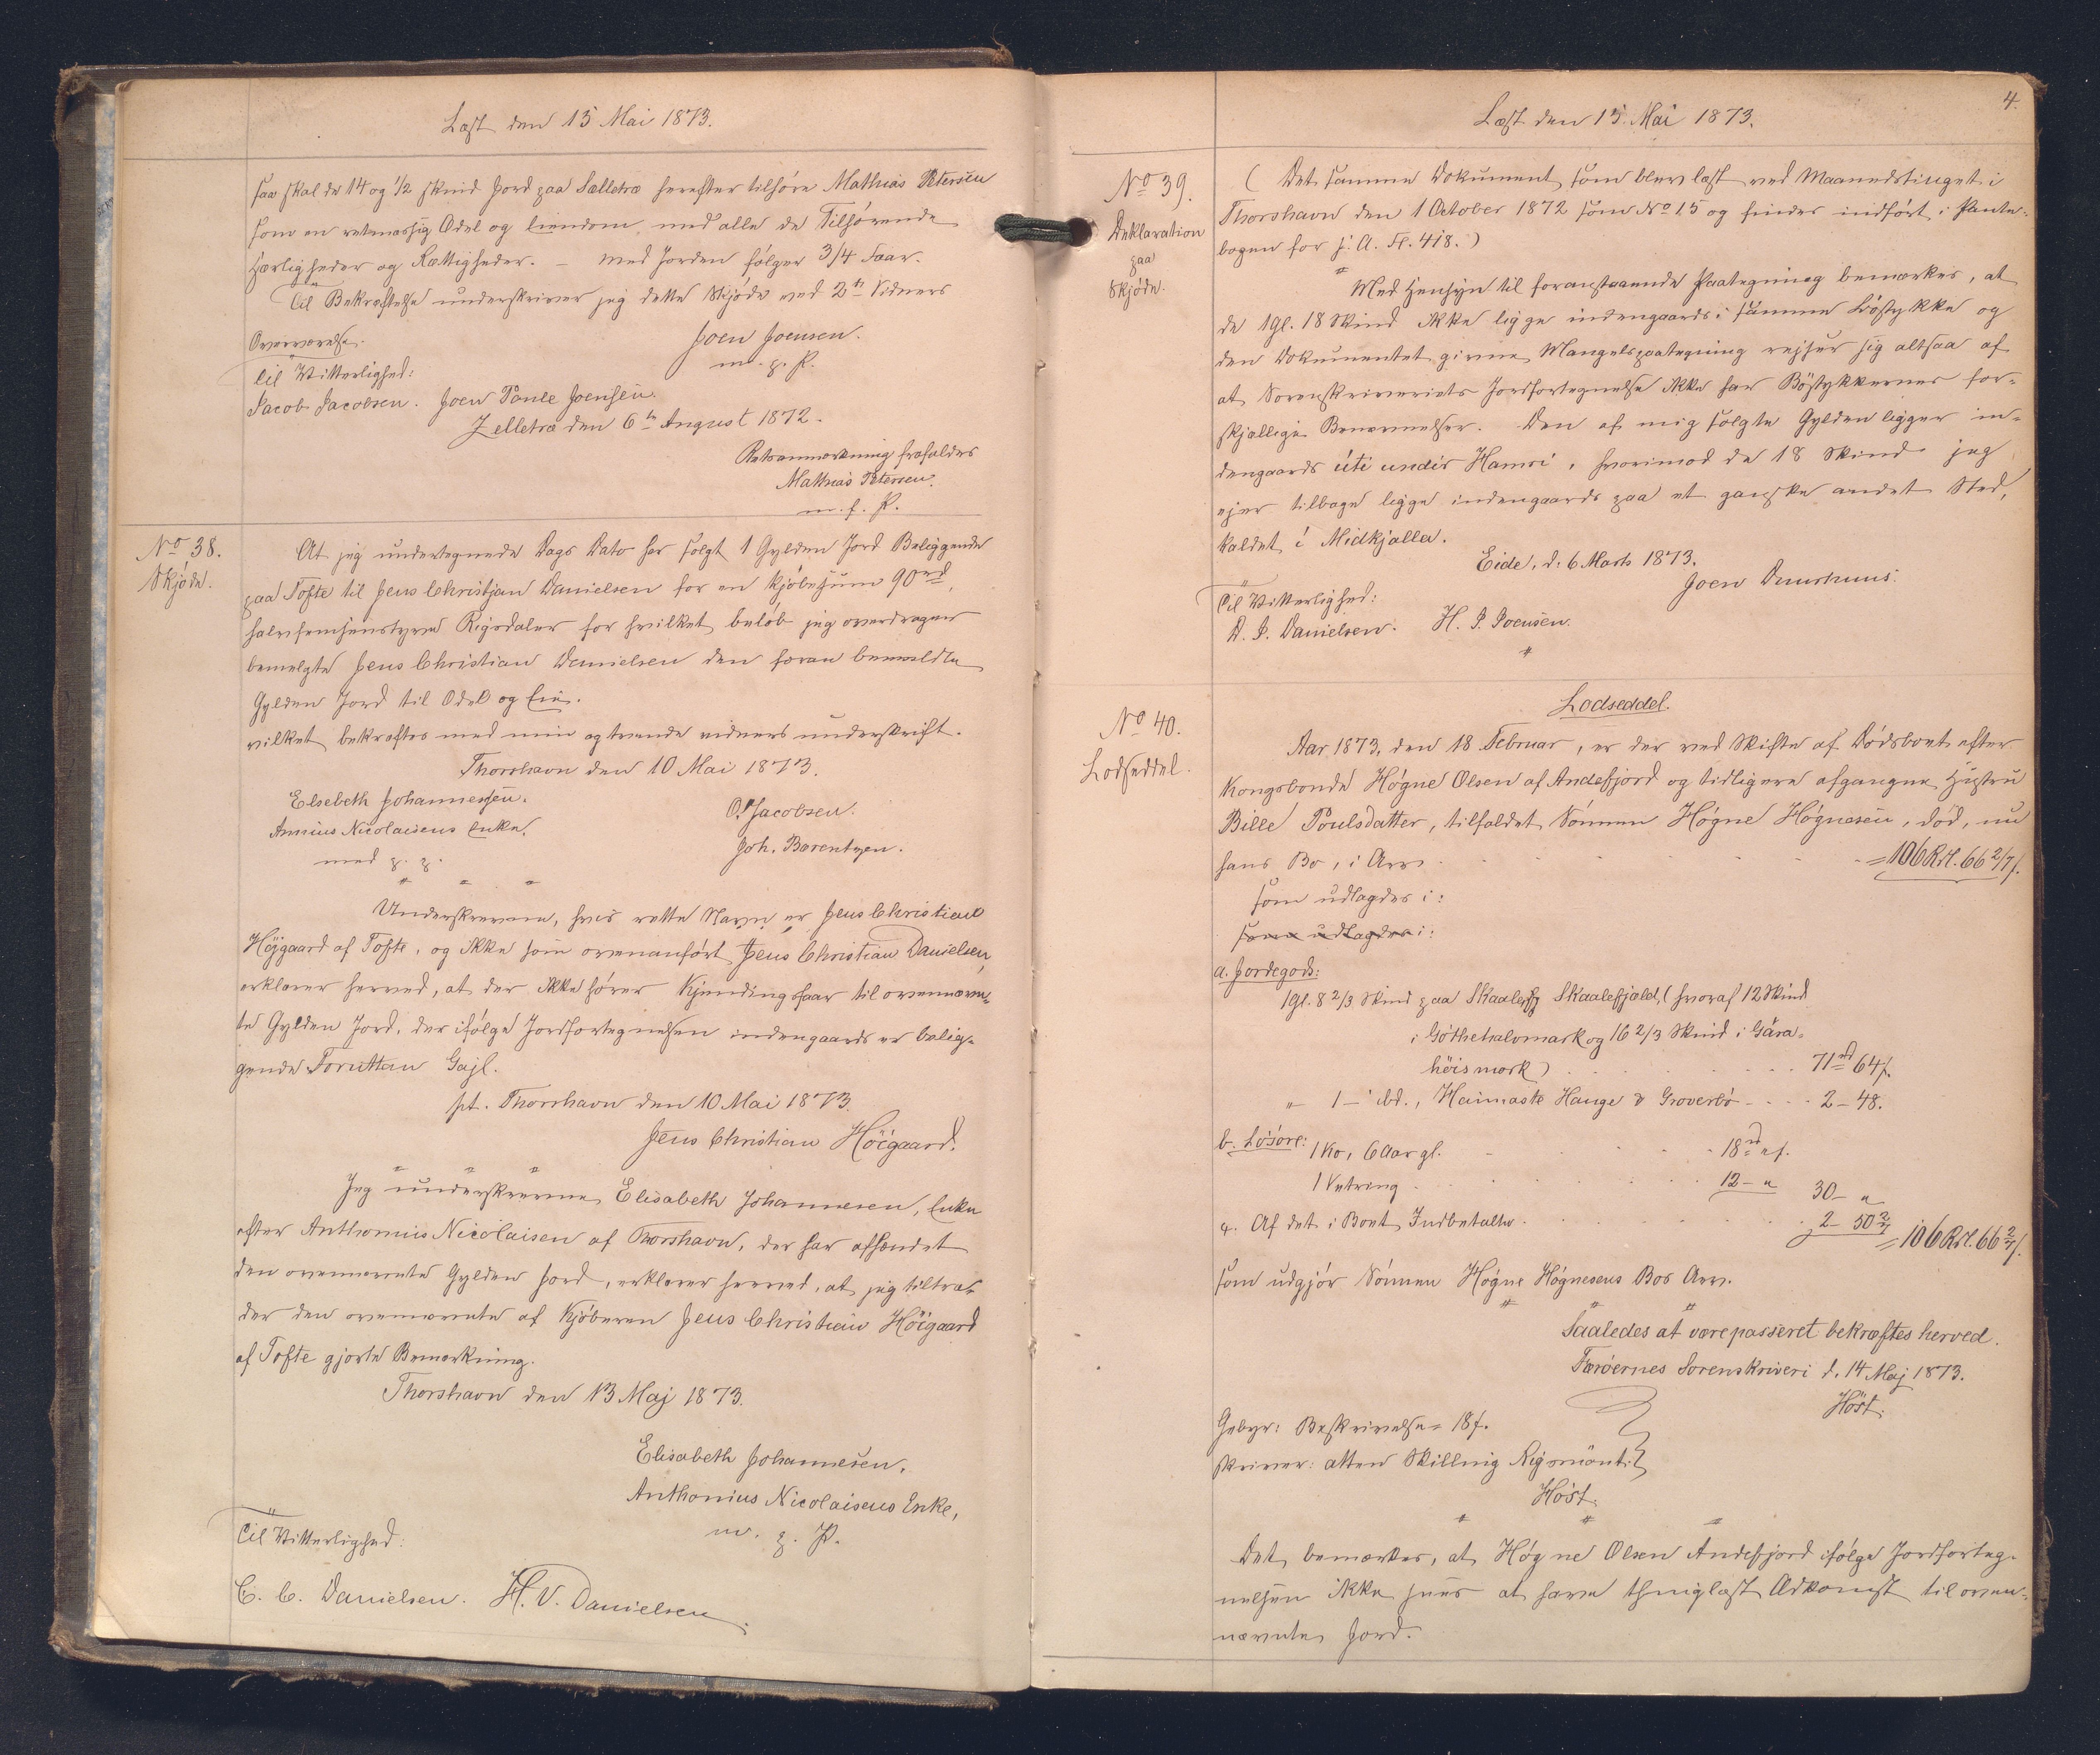 Læst den 15 Mai 1873.
saa skal de 14 og 1/2 skind Jord paa Sælletræ herefter tilhøre Mathias Petersen
som en retmæssig Odel og Eiendom, med alle de Tilhørende
Herligheder og Rettigheder. – med Jorden følger 3/4 Faar.
Til Bekræftelse underskriver jeg dette Skjøde ved 2de Vidners
Overværelse.
Joen Joensen.
m. p. P.
Til Vitterlighed:
Jacob Jacobsen. Joen Poule Joensen.
Zelletræ den 6te August 1872.
Retsanmærkning frafaldes
Mathias Petersen.
m. f. P.
No 38.
Skjøde.
At jeg undertegnede Dags Dato har solgt 1 Gylden Jord Beliggende
paa Tofte til Jens Christjan Danielsen for en Kjøbesum 90 rd,
halvfemsenstyve Rigsdaler for hvilket beløb jeg overdrager
bemelgte Jens Christian Danielsen den foran bemældte
Gylden Jord til Odel og Eie.
vilket bekræftes med min og tvende vidners underskrift.
Thorshavn den 10 Mai 1873.
Elsebeth Johannessen.
Annius Nicolaisens Enke.
med p. p.
O. Jacobsen.
Joh. Barentzen.
Underskrevne, hvis rette Navn er Jens Christian
Højgaard af Tofte, og ikke som ovenanført Jens Christian Danielsen,
erklærer herved, at der ikke hører Kjendingsfaar til ovennævn-
te Gylden Jord, der ifølge Jordfortegnelsen indengaards er belig-
gende Foruttan Gajl.
pt. Thorshavn den 10 Mai 1873.
Jens Christian Höigaard.
Jeg underskrevne Elisabeth Johannesen, Enke
efter Anthonius Nicolaisen af Thorshavn, der har afhændet
den ovennævnte Gylden Jord, erklærer herved, at jeg tiltræ-
der den ovennævnte af Kjøberen Jens Christian Höigaard
af Tofte gjorte Bemærkning.
Thorshavn den 13 Maj 1873.
Elisabeth Johannesen,
Anthonius Nicolaisens Enke,
m. p. P.
Til Vitterlighed:
C. C. Danielsen. H. V. Danielsen.
4.
Læst den 15. Mai 1873.
No 39.
Deklaration
paa
Skjøde.
( Det samme Dokument, som blev læst ved Maanedstinget i
Thorshavn den 1 October 1872 som No 15 og findes indført i Pante-
bogen for s: A. Fl. 418. )
Med Hensyn til foranstaaende Paategning bemærkes, at
de 1 gl. 18 Skind ikke ligge indengaards i samme Bøstykke og
den Dokumentet givne Mangelspaategning rejser sig altsaa af
at Sorenskriveriets Jordfortegnelse ikke har Bøstykkernes for-
skjellige Benævnelser. Den af mig solgte Gylden ligger in-
dengaards úti undir Hamri, hvorimod de 18 Skind jeg
ejer tilbage ligge indengaards paa et ganske andet Sted,
kaldet i Midkjalla.
Eide, d. 6 Marts 1873.
Joen Duurhuus.
Til Vitterlighed:
D. J. Danielsen. H. J. Joensen.
No 40.
Lodseddel.
Lodseddel.
Aar 1873, den 18 Februar, er der ved Skifte af Dødsboet efter
Kongsbonde Høgne Olsen af Andefjord og tidligere afgangne Hustru
Bille Poulsdatter, tilfaldet Sønnen Høgne Høgnesen, død, nu
hans Bo, i Arv = 106 Rdl. 66 2/7 s.
som udlagdes i:
som udlagdes i:
a. Jordegods:
1 gl. 8 2/3 Skind paa Skaalefjeld, (hvoraf 12 Skind
i Göthehalvmark og 16 2/3 Skind i Gåra-
höismark) 71 rd 64 s.
" 1 – ibd., Heimaste Hauge & Groverbö 2 – 48.
b. Løsøre: 1 Ko, 6 Aar gl. 18 rd " s.
1 Vetring 12 – " 30 – "
c. Af det i Boet Indbetalte 2 – 50 2/7 = 106 Rdl. 66 2/7 s.
som udgjør Sønnen Høgne Høgnesens Bos Arv.
Saaledes at være passeret bekræftes herved.
Færöernes Sorenskriveri d. 14 Maj 1873.
Höst.
Gebyr: Beskrivelse = 18 s.
skriver: atten Skilling Rigsmönt.
Höst.
Det bemærkes, at Høgne Olsen Andefjord ifølge Jordforteg-
nelsen ikke sees at have thinglæst Adkomst til oven-
nævnte Jord.